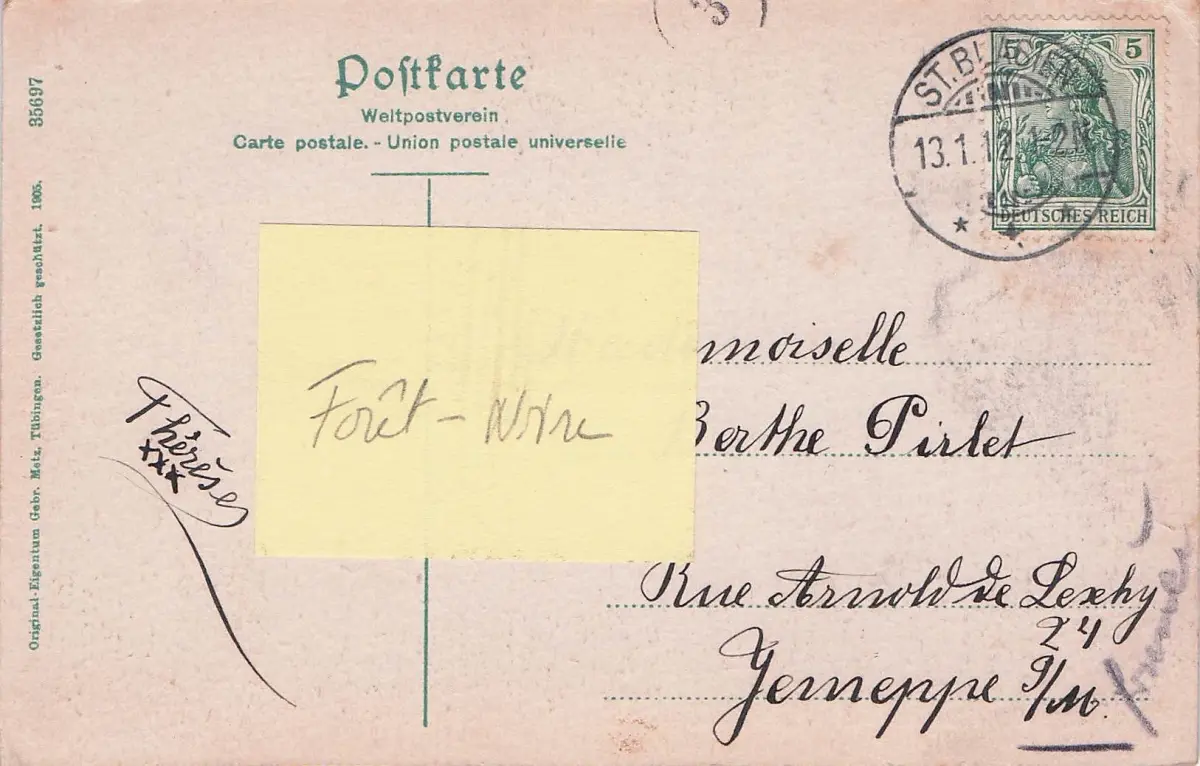 Postkarte
Weltpostverein
Carte postale. - Union postale universelle
35697
Original-Eigentum Gebr. Metz, Tübingen. Gesetzlich geschützt. 1905.
5 5
DEUTSCHES REICH
ST. BLASIEN
13.1.12. 1-2N
Forêt - Noire
Thérèse
xxx
moiselle
Berthe Pirlet
Rue Arnold de Lexhy
24
Jemeppe s/M.